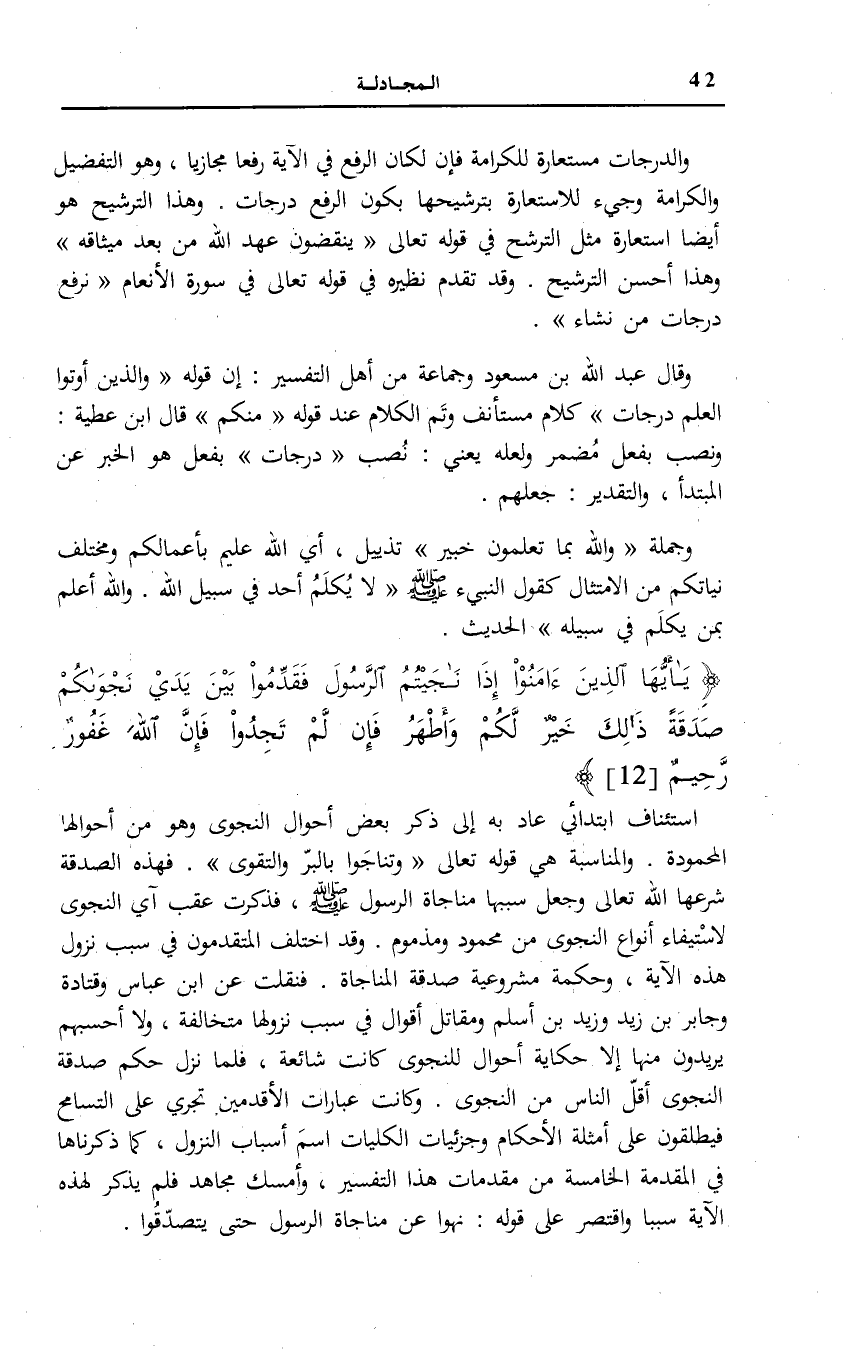 42
المجادلة
والدرجات مستعارة للكرامة فإن لكان الرفع في الآية رفعا مجازيا ، وهو التفضيل
والكرامة وجيء للاستعارة بترشيحها بكون الرفع درجات . وهذا الترشيح هو
أيضا استعارة مثل الترشح في قوله تعالى « ينقضون عهد الله من بعد ميثاقه »
وهذا أحسن الترشيح . وقد تقدم نظيره في قوله تعالى في سورة الأنعام « نرفع
درجات من نشاء » .
وقال عبد الله بن مسعود وجماعة من أهل التفسير : إن قوله « والذين أوتوا
العلم درجات » كلام مستأنف وتَم الكلام عند قوله « منكم » قال ابن عطية :
ونصب بفعل مُضمر ولعله يعني : نُصب « درجات » بفعل هو الخبر عن
المبتدأ ، والتقدير : جعلهم .
وجملة « والله بما تعلمون خبير » تذييل ، أي الله عليم بأعمالكم ومختلف
نياتكم من الامتثال كقول النبيء ﷺ « لا يُكلَمُ أحد في سبيل الله . والله أعلم
بمن يكلَم في سبيله » الحديث .
﴿ يَـٰٓأَيُّهَا ٱلَّذِينَ ءَامَنُوٓا۟ إِذَا نَـٰجَيْتُمُ ٱلرَّسُولَ فَقَدِّمُوا۟ بَيْنَ يَدَىْ نَجْوَىٰكُمْ
صَدَقَةً ذَٰلِكَ خَيْرٌ لَّكُمْ وَأَطْهَرُ فَإِن لَّمْ تَجِدُوا۟ فَإِنَّ ٱللَّهَ غَفُورٌ
رَّحِيمٌ [12] ﴾
استئناف ابتدائي عاد به إلى ذكر بعض أحوال النجوى وهو من أحوالها
المحمودة . والمناسبة هي قوله تعالى « وتناجَوا بالبرّ والتقوى » . فهذه الصدقة
شرعها الله تعالى وجعل سببها مناجاة الرسول ﷺ ، فذكرت عقب آي النجوى
لاسْتيفاء أنواع النجوى من محمود ومذموم . وقد اختلف المتقدمون في سبب نزول
هذه الآية ، وحكمة مشروعية صدقة المناجاة . فنقلت عن ابن عباس وقتادة
وجابر بن زيد وزيد بن أسلم ومقاتل أقوال في سبب نزولها متخالفة ، ولا أحسبهم
يريدون منها إلا حكاية أحوال للنجوى كانت شائعة ، فلما نزل حكم صدقة
النجوى أقلّ الناس من النجوى . وكانت عبارات الأقدمين تجري على التسامح
فيطلقون على أمثلة الأحكام وجزئيات الكليات اسمَ أسباب النزول ، كما ذكرناها
في المقدمة الخامسة من مقدمات هذا التفسير ، وأمسك مجاهد فلم يذكر لهذه
الآية سببا واقتصر على قوله : نهوا عن مناجاة الرسول حتى يتصدّقُوا .